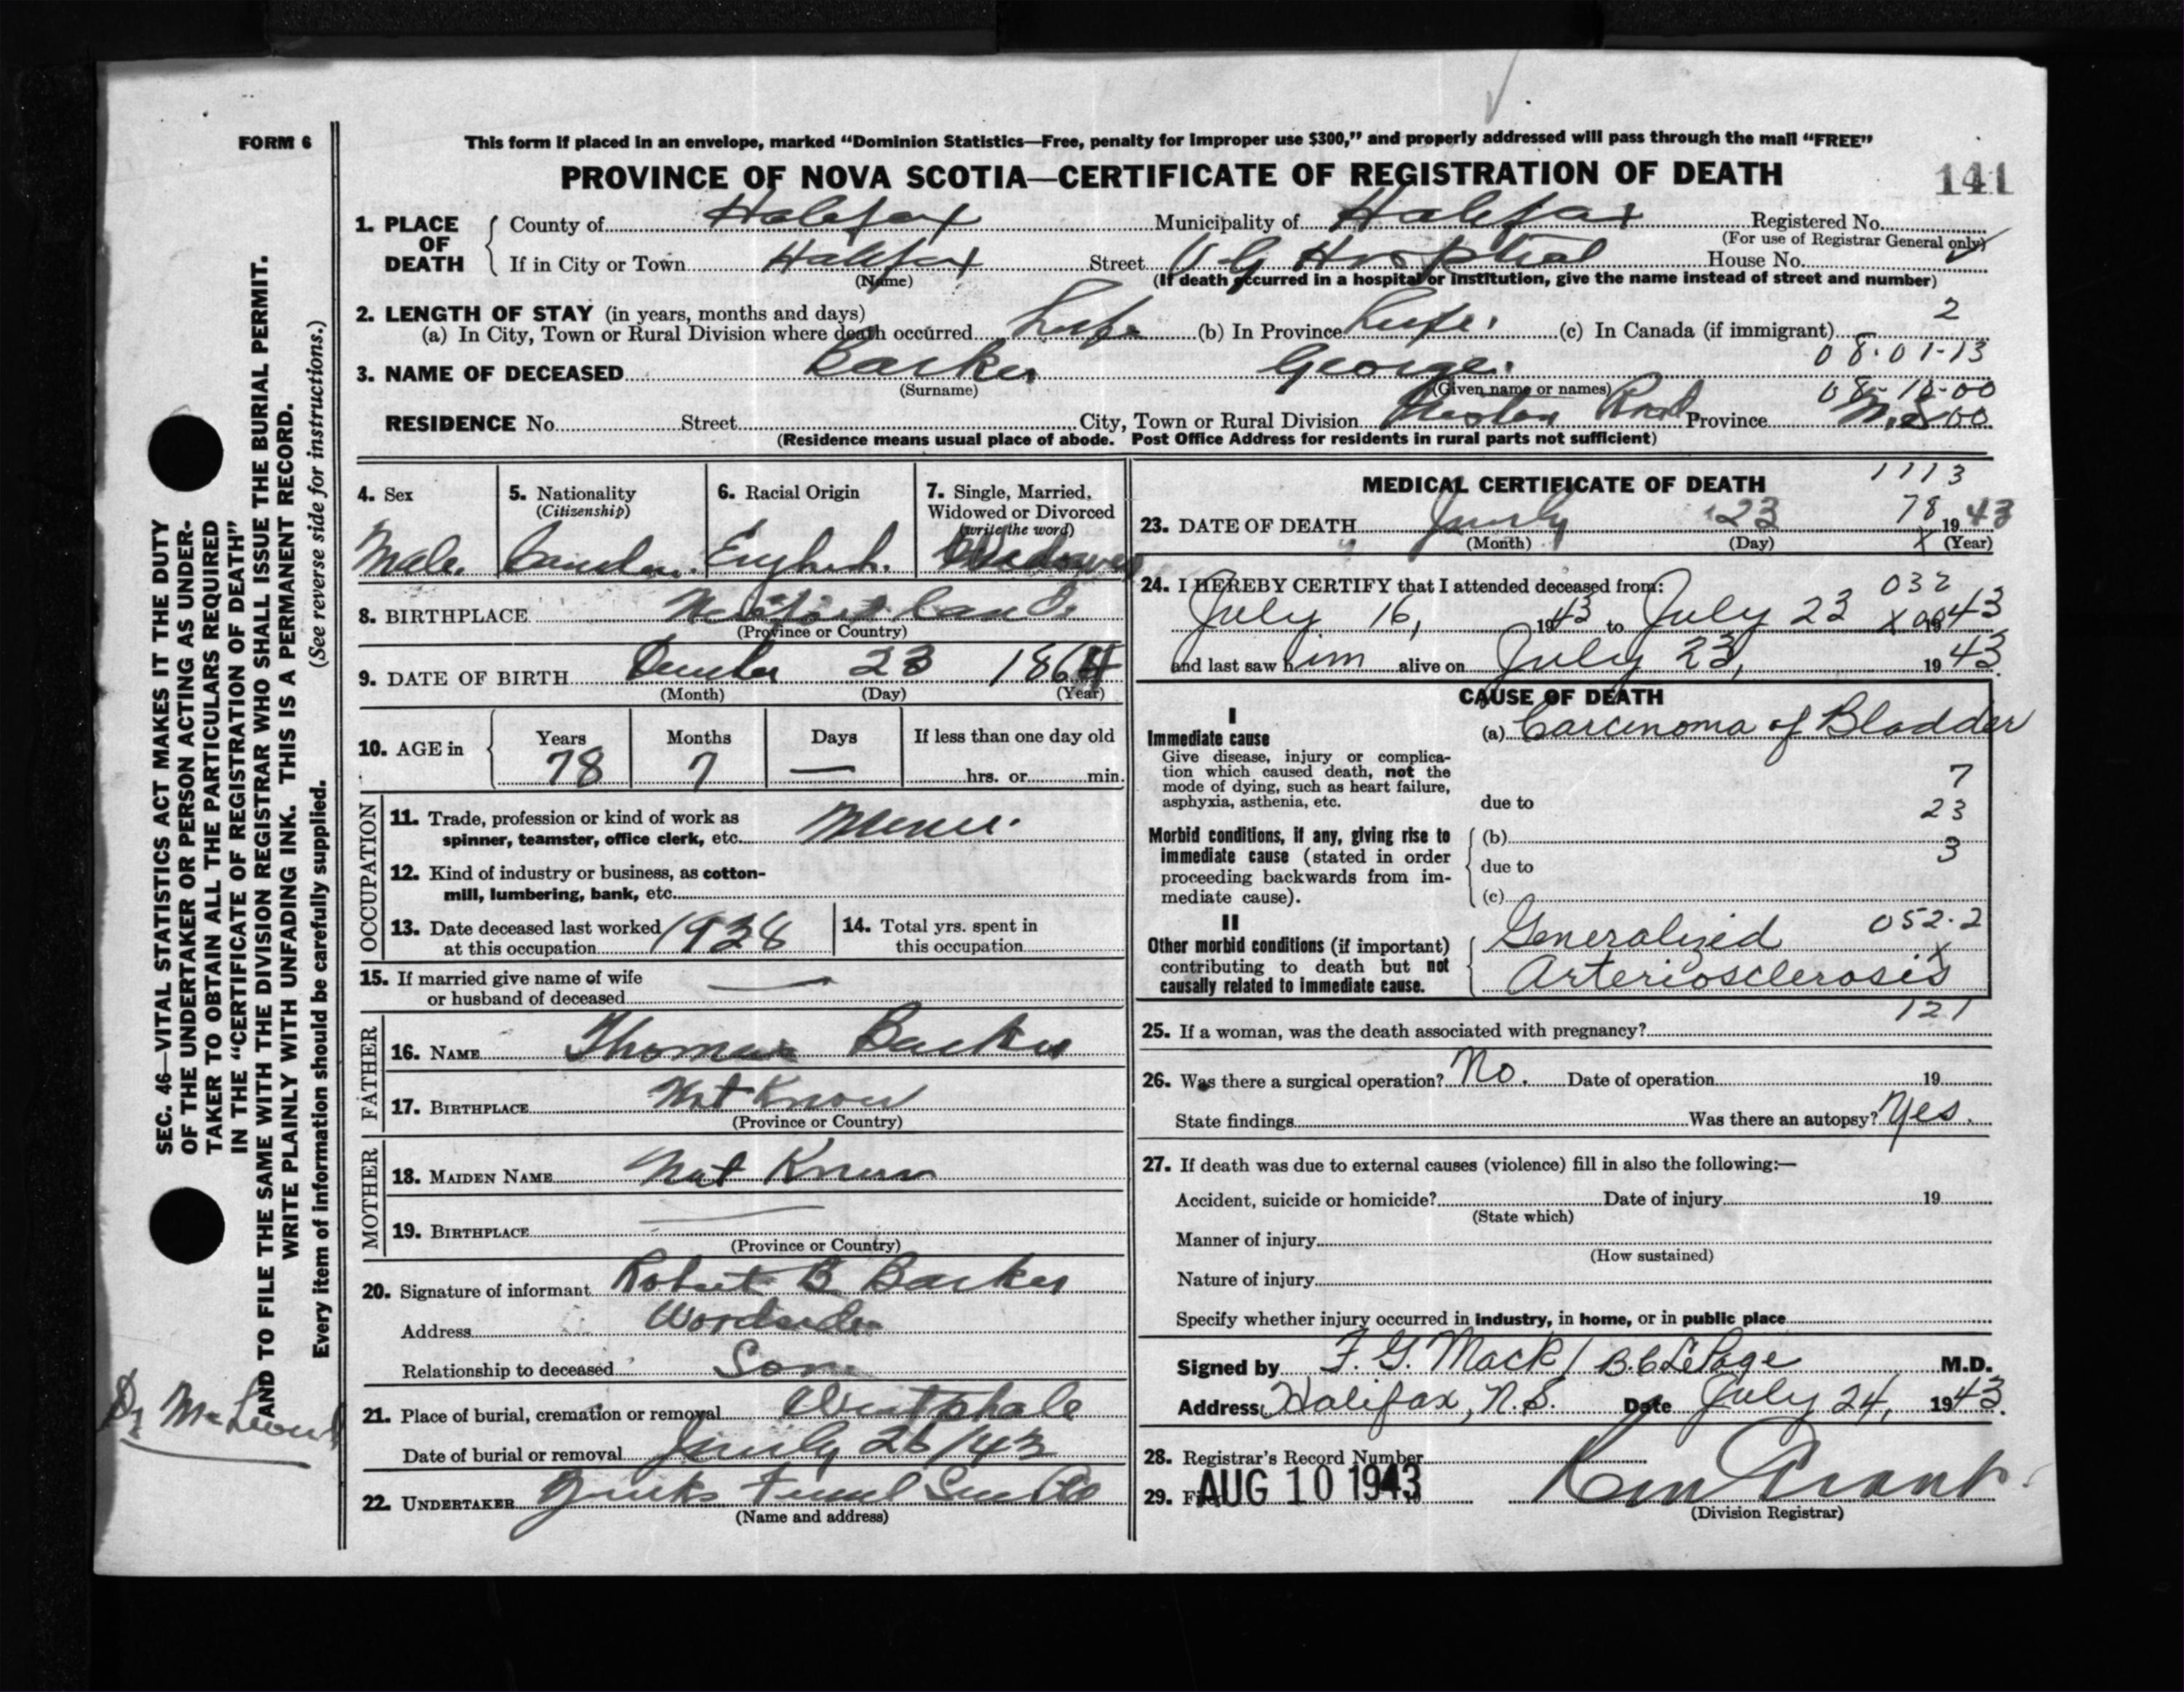 FORM 6
This form if placed in an envelope, marked “Dominion Statistics—Free, penalty for improper use $300,” and properly addressed will pass through the mail “FREE”
PROVINCE OF NOVA SCOTIA—CERTIFICATE OF REGISTRATION OF DEATH
141
1. PLACE OF DEATH
County of Halifax Municipality of Halifax Registered No.
(For use of Registrar General only)
If in City or Town Halifax Street V G Hospital House No.
(Name) (If death occurred in a hospital or institution, give the name instead of street and number)
2. LENGTH OF STAY (in years, months and days)
2
(a) In City, Town or Rural Division where death occurred Life (b) In Province Life. (c) In Canada (if immigrant)
08-01-13
3. NAME OF DECEASED Barker George.
(Surname) (Given name or names)
RESIDENCE No. Street City, Town or Rural Division Preston Road Province N.S.
(Residence means usual place of abode. Post Office Address for residents in rural parts not sufficient)
4. Sex
Male.
5. Nationality
(Citizenship)
6. Racial Origin
English.
7. Single, Married, Widowed or Divorced
(write the word)
Widower
8. BIRTHPLACE
(Province or Country)
9. DATE OF BIRTH December 23 1864
(Month) (Day) (Year)
10. AGE in
Years Months Days If less than one day old
78 7 — hrs. or min.
OCCUPATION
11. Trade, profession or kind of work as
spinner, teamster, office clerk, etc. Miner.
12. Kind of industry or business, as cotton-
mill, lumbering, bank, etc.
13. Date deceased last worked
at this occupation 1928
14. Total yrs. spent in
this occupation
15. If married give name of wife
or husband of deceased —
FATHER
16. NAME Thomas Barker
17. BIRTHPLACE Not Know
(Province or Country)
MOTHER
18. MAIDEN NAME Not Known
19. BIRTHPLACE —
(Province or Country)
20. Signature of informant Robert B Barker
Address Woodside
Relationship to deceased Son
21. Place of burial, cremation or removal Westphale
Date of burial or removal July 26/43
22. UNDERTAKER
(Name and address)
MEDICAL CERTIFICATE OF DEATH
1113
78
23. DATE OF DEATH July 23 1943
(Month) (Day) (Year)
24. I HEREBY CERTIFY that I attended deceased from:
032
July 16, 1943 to July 23 1943
and last saw him alive on July 23, 1943
CAUSE OF DEATH
I
Immediate cause
Give disease, injury or complica-
tion which caused death, not the
mode of dying, such as heart failure,
asphyxia, asthenia, etc.
(a) Carcinoma of Bladder
7
due to 23
Morbid conditions, if any, giving rise to
immediate cause (stated in order
proceeding backwards from im-
mediate cause).
(b) 3
due to
(c)
II
Other morbid conditions (if important)
contributing to death but not
causally related to immediate cause.
Generalized 052-2
Arteriosclerosis
121
25. If a woman, was the death associated with pregnancy?
26. Was there a surgical operation? No. Date of operation 19
State findings Was there an autopsy? Yes.
27. If death was due to external causes (violence) fill in also the following:—
Accident, suicide or homicide? Date of injury 19
(State which)
Manner of injury
(How sustained)
Nature of injury
Specify whether injury occurred in industry, in home, or in public place
Signed by F. G. Mack / B. C. LePage M.D.
Address Halifax, N.S. Date July 24, 1943.
28. Registrar's Record Number
29. AUG 10 1943
(Division Registrar)
SEC. 46—VITAL STATISTICS ACT MAKES IT THE DUTY
OF THE UNDERTAKER OR PERSON ACTING AS UNDER-
TAKER TO OBTAIN ALL THE PARTICULARS REQUIRED
IN THE “CERTIFICATE OF REGISTRATION OF DEATH”
AND TO FILE THE SAME WITH THE DIVISION REGISTRAR WHO SHALL ISSUE THE BURIAL PERMIT.
WRITE PLAINLY WITH UNFADING INK. THIS IS A PERMANENT RECORD.
Every item of information should be carefully supplied. (See reverse side for instructions.)